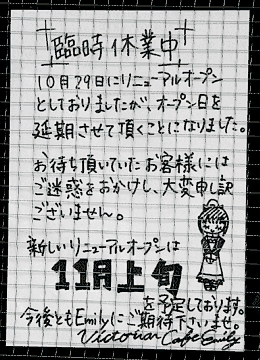 臨時休業中
10月29日にリニューアルオープン
としておりましたが、オープン日を
延期させて頂くことになりました。
お待ち頂いていたお客様には
ご迷惑をおかけし、大変申し訳
ございません。
新しいリニューアルオープンは
11月上旬
を予定しております。
今後ともEmilyにご期待下さいませ。
Victorian Cafe Emily